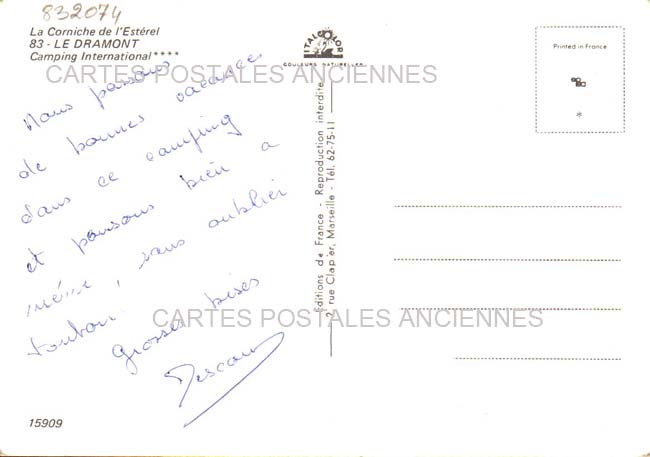 832074
La Corniche de l'Estérel
83 - LE DRAMONT
Camping International ****
CARTES POSTALES ANCIENNES
Nous passons
de bonnes vacances
dans ce camping
et pensons bien a
mémé, sans oublier
tonton.
Grosses bises
15909
ITALCOLOR
COULEURS NATURELLES
Editions de France - Reproduction interdite
2, rue Clapier, Marseille - Tél. 62-75-11
Printed in France
*
CARTES POSTALES ANCIENNES